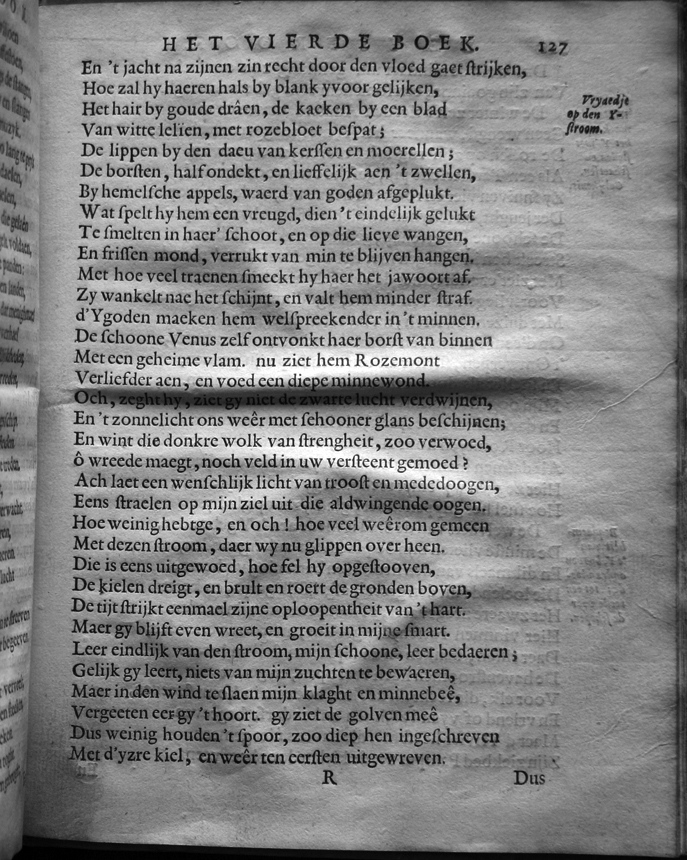 HET VIERDE BOEK. 127
En 't jacht na zijnen zin recht door den vloed gaet ſtrijken,
Hoe zal hy haeren hals by blank yvoor gelijken,
Het hair by goude drâen, de kaeken by een blad
Van witte lelien, met rozebloet beſpat;
De lippen by den daeu van kerſſen en moerellen;
De borſten, half ondekt, en lieffelijk aen 't zwellen,
By hemelſche appels, waerd van goden afgeplukt.
Wat ſpelt hy hem een vreugd, dien 't eindelijk gelukt
Te ſmelten in haer' ſchoot, en op die lieve wangen,
En friſſen mond, verrukt van min te blijven hangen.
Met hoe veel traenen ſmeekt hy haer het jawoort af.
Zy wankelt nae het ſchijnt, en valt hem minder ſtraf.
d'Ygoden maeken hem welſpreekender in 't minnen.
De ſchoone Venus zelf ontvonkt haer borſt van binnen
Met een geheime vlam. nu ziet hem Rozemont
Verliefder aen, en voed een diepe minnewond.
Och, zeght hy, ziet gy niet de zwarte lucht verdwijnen,
En 't zonnelicht ons weêr met ſchooner glans beſchijnen;
En wint die donkre wolk van ſtrengheit, zoo verwoed,
ô wreede maegt, noch veld in uw verſteent gemoed?
Ach laet een wenſchlijk licht van trooſt en mededoogen,
Eens ſtraelen op mijn ziel uit die aldwingende oogen.
Hoe weinig hebtge, en och! hoe veel weêrom gemeen
Met dezen ſtroom, daer wy nu glippen over heen.
Die is eens uitgewoed, hoe fel hy opgeſtooven,
De kielen dreigt, en brult en roert de gronden boven,
De tijt ſtrijkt eenmael zijne oploopentheit van 't hart.
Maer gy blijft even wreet, en groeit in mijne ſmart.
Leer eindlijk van den ſtroom, mijn ſchoone, leer bedaeren;
Gelijk gy leert, niets van mijn zuchten te bewaeren,
Maer in den wind te ſlaen mijn klaght en minnebeê,
Vergeeten eer gy 't hoort. gy ziet de golven meê
Dus weinig houden 't ſpoor, zoo diep hen ingeſchreven
Met d'yzre kiel, en weêr ten eerſten uitgewreven.
R Dus
Vryaedje
op den Y-
ſtroom.